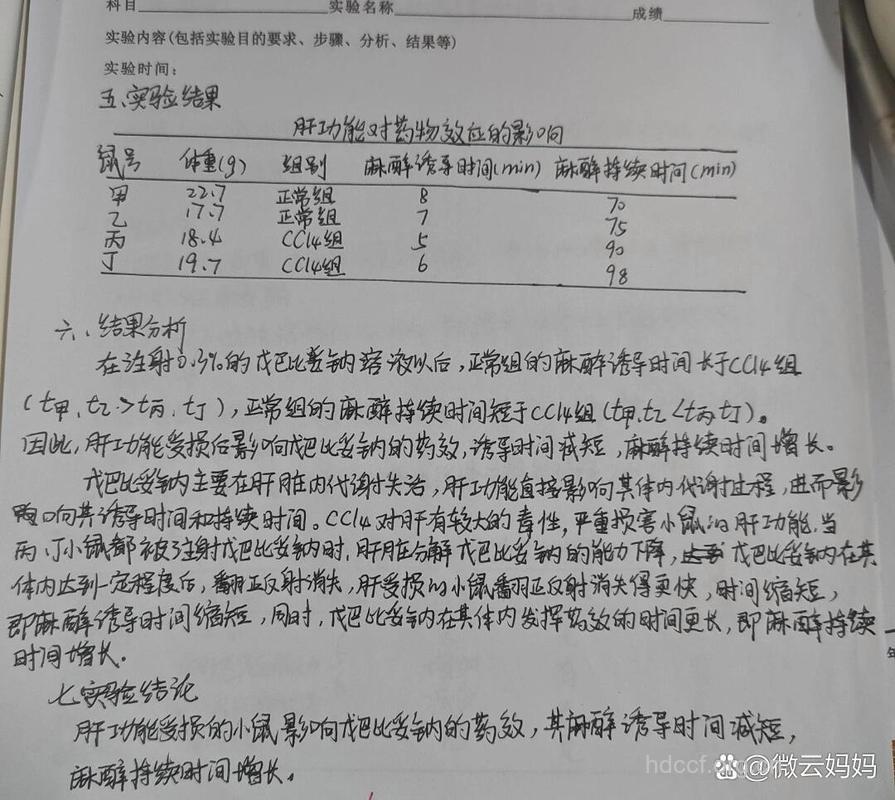 科目 实验名称 成绩
实验内容(包括实验目的要求、步骤、分析、结果等)
实验时间:
五、实验结果
肝功能对药物效应的影响
鼠号 体重(g) 组别 麻醉诱导时间(min) 麻醉持续时间(min)
甲 22.7 正常组 8 70
乙 17.7 正常组 7 75
丙 18.4 CCl4组 5 90
丁 19.7 CCl4组 6 98
六、结果分析
在注射0.3%的戊巴比妥钠溶液以后,正常组的麻醉诱导时间长于CCl4组
(t甲、t乙>t丙、t丁),正常组的麻醉持续时间短于CCl4组(t甲、t乙<t丙、t丁)。
因此,肝功能受损后影响戊巴比妥钠的药效,诱导时间减短,麻醉持续时间增长。
戊巴比妥钠主要在肝脏内代谢失活,肝功能直接影响其体内代谢过程,进而影
响其诱导时间和持续时间。CCl4对肝有较大的毒性,严重损害小鼠的肝功能。当
丙、丁小鼠都被注射戊巴比妥钠时,肝脏分解戊巴比妥钠的能力下降,戊巴比妥钠在其
体内达到一定程度后,翻正反射消失,肝受损的小鼠翻正反射消失得更快,时间缩短,
即麻醉诱导时间缩短,同时,戊巴比妥钠在其体内发挥药效的时间更长,即麻醉持续
时间增长。
七、实验结论
肝功能受损的小鼠影响戊巴比妥钠的药效,其麻醉诱导时间减短,
麻醉持续时间增长。
年
@微云妈妈